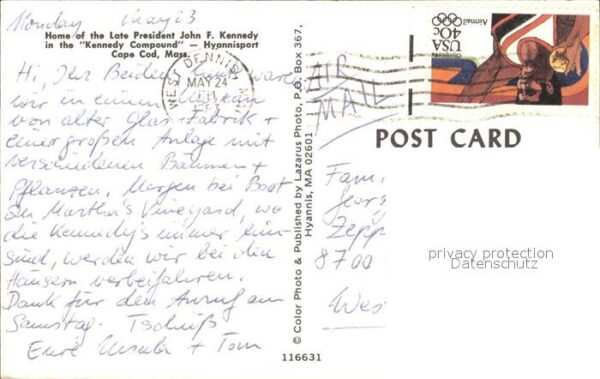 Monday May 23
Home of the Late President John F. Kennedy
in the "Kennedy Compound" — Hyannisport
Cape Cod, Mass.
Hi, Ihr Beiden, heute waren
wir in einem Museum
von alter Glas-Fabrik +
einer großen Anlage mit
verschiedenen Bäumen +
Pflanzen, Morgen bei Boot
zu Martha's Vineyard, wo
die Kennedy's immer
sind, werden wir bei den
Häusern vorbeifahren.
Dank für den Anruf am
Samstag. Tschüß
Eure Ursula + Tom
WEST DENNIS, MA
MAY 24
PM
© Color Photo & Published by Lazarus Photo, P.O. Box 367,
Hyannis, MA 02601
116631
USA
40c
Airmail
Olympics
AIR
MAIL
POST CARD
Fam.
Georg
Zepp
8700
Wes
privacy protection
Datenschutz